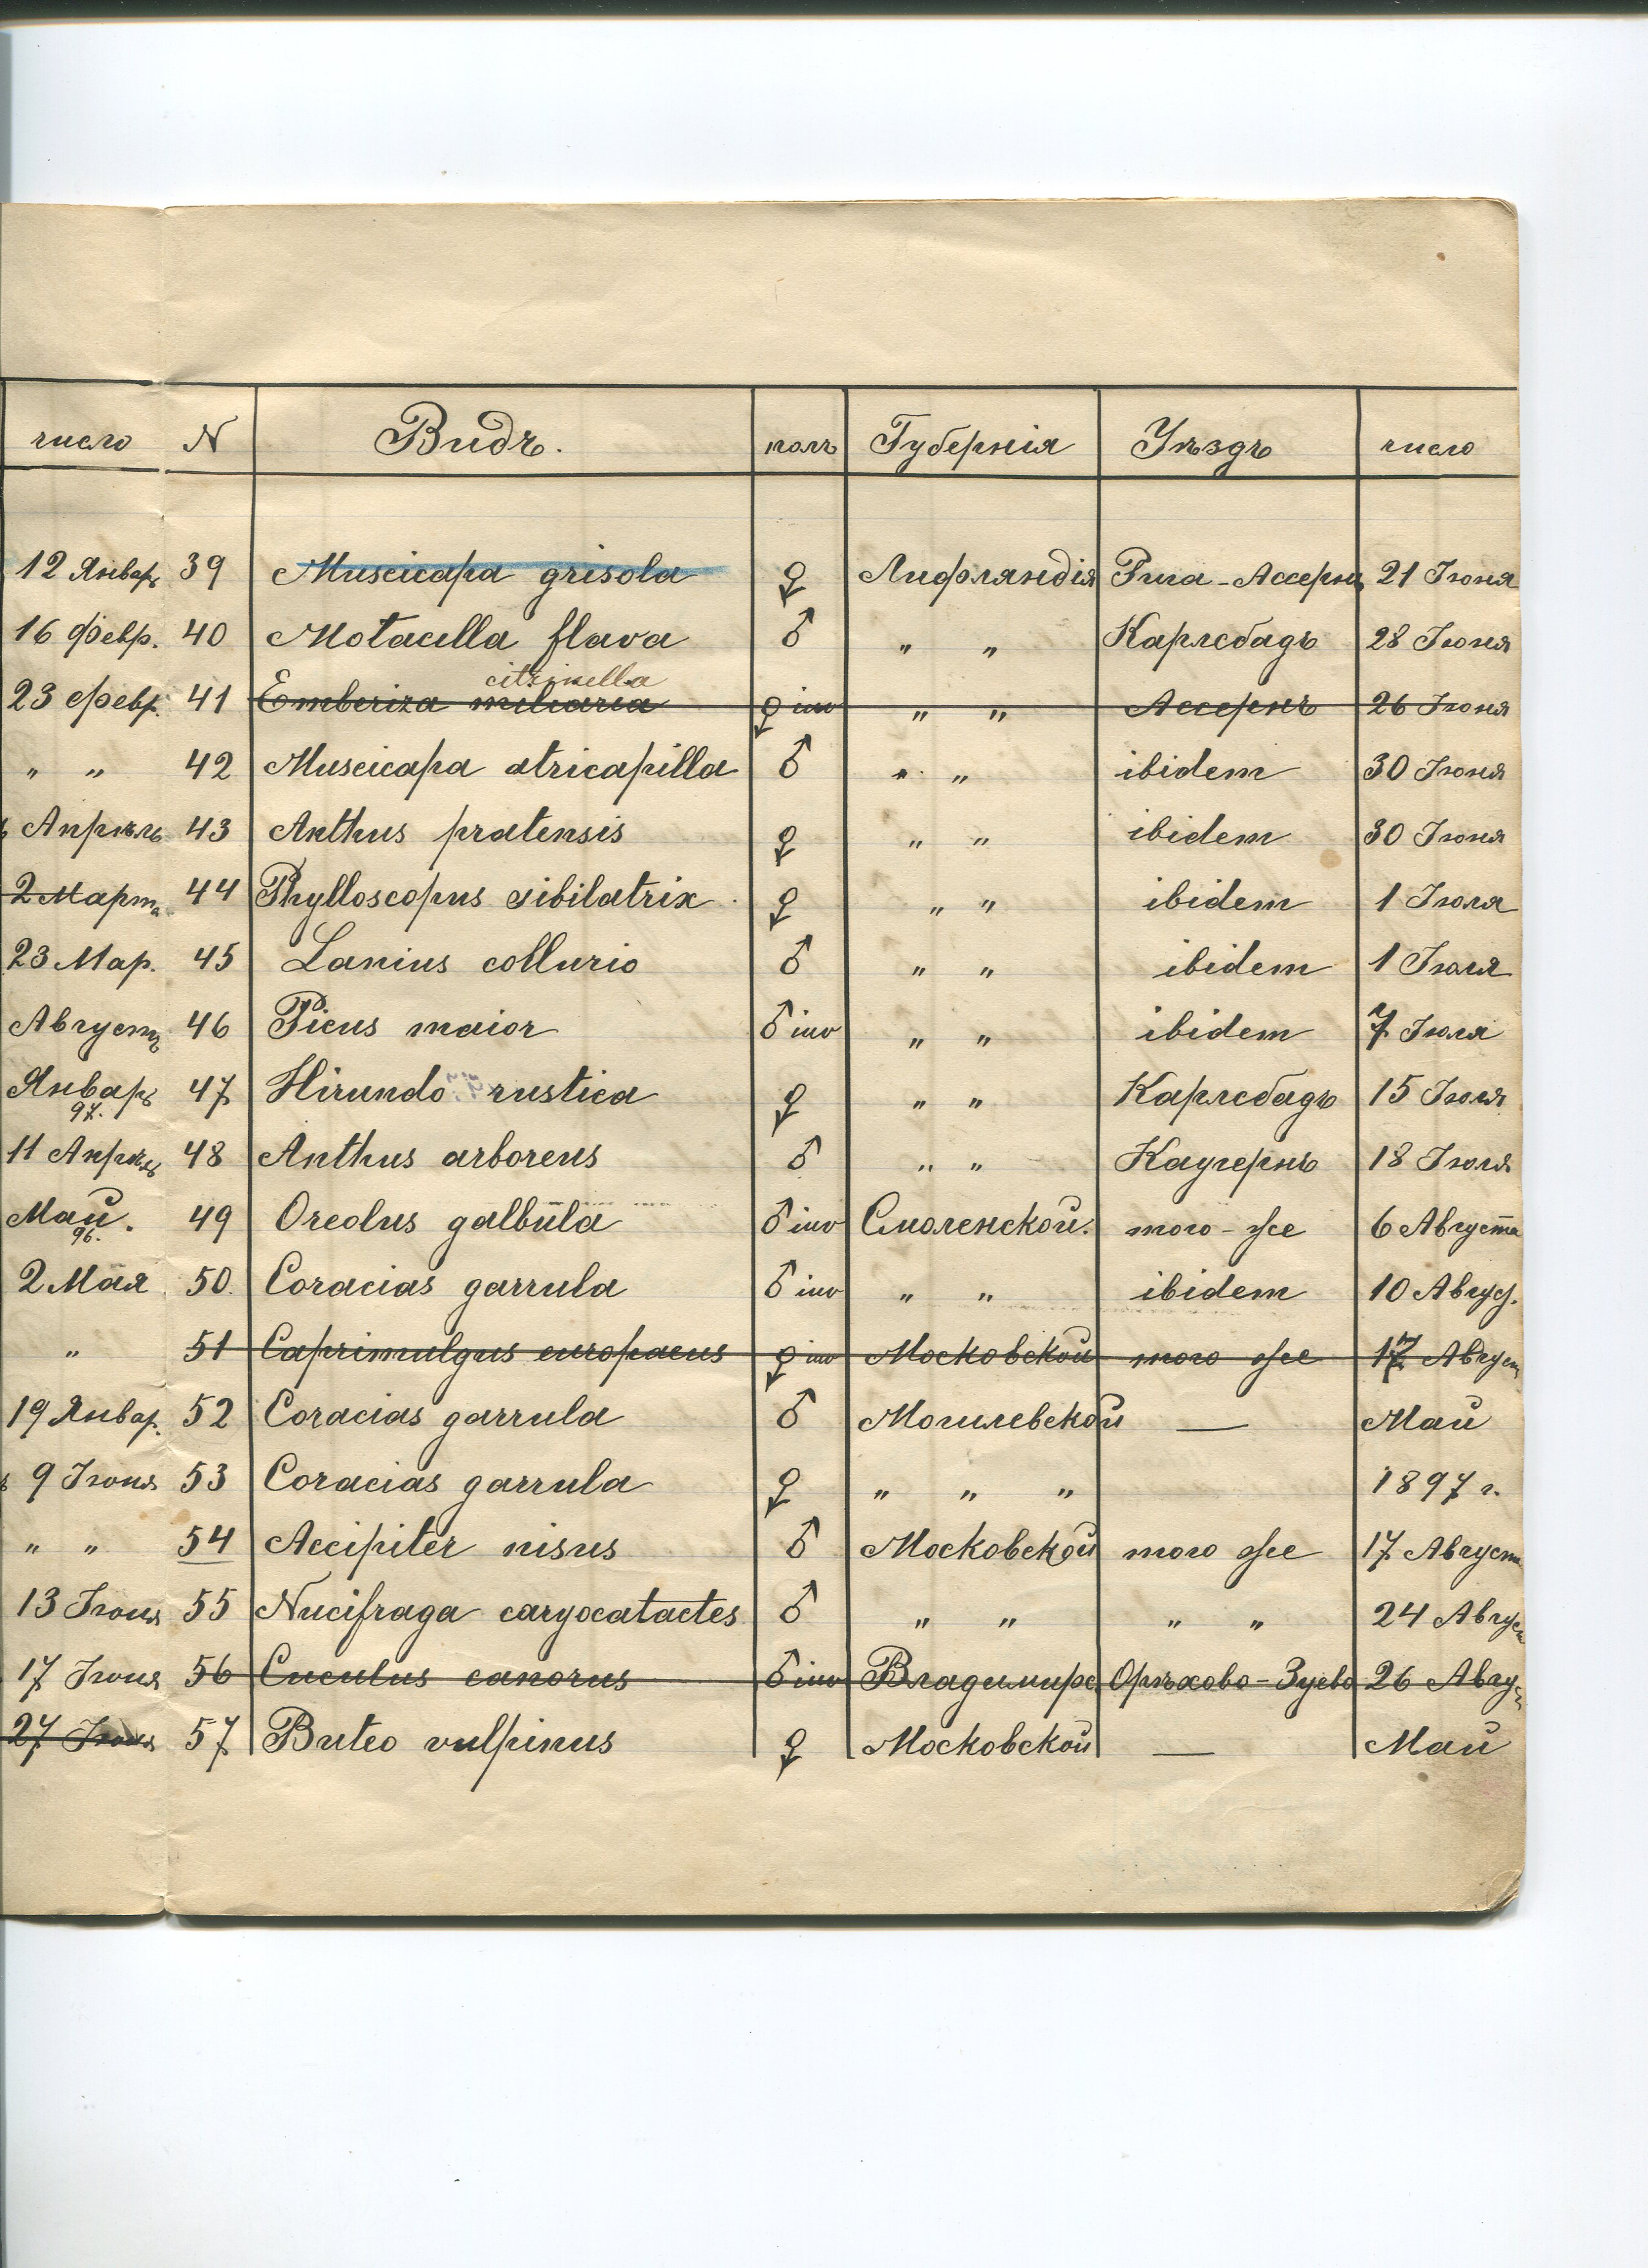 число N Видъ. полъ Губернія Уѣздъ число
12 Январь 39 Muscicapa grisola ♀ Лифляндія Рига-Ассернъ 21 Іюня
16 Февр. 40 Motacilla flava ♂ " " Карлсбадъ 28 Іюня
citrinella
23 февр. 41 Emberiza miliaria ♀ iuv " " Ассернъ 26 Іюня
" " 42 Muscicapa atricapilla ♂ " " ibidem 30 Іюня
Апрѣль 43 Anthus pratensis ♀ " " ibidem 30 Іюня
2 Марта 44 Phylloscopus sibilatrix ♀ " " ibidem 1 Іюля
23 Мар. 45 Lanius collurio ♂ " " ibidem 1 Іюля
Августъ 46 Picus maior ♂ iuv " " ibidem 7 Іюля
Январь 47 Hirundo rustica ♀ " " Карлсбадъ 15 Іюля
97.
11 Апрѣль 48 Anthus arboreus ♂ " " Каугернъ 18 Іюля
Май. 49 Oreolus galbula ♂ iuv Смоленской. того-же 6 Августа
96.
2 Мая 50. Coracias garrula ♂ iuv " " ibidem 10 Август.
" 51 Caprimulgus europaeus ♀ iuv Московской того же 17 Август
19 Январ. 52 Coracias garrula ♂ Могилевской — Май
9 Іюня 53 Coracias garrula ♀ " " " 1897 г.
" " 54 Accipiter nisus ♂ Московской того же 17 Августа
13 Іюня 55 Nucifraga caryocatactes ♂ " " " " 24 Август
17 Іюня 56 Cuculus canorus ♂ iuv Владимирс. Орѣхово-Зуево 26 Август
27 Іюня 57 Buteo vulpinus ♀ Московской — Май